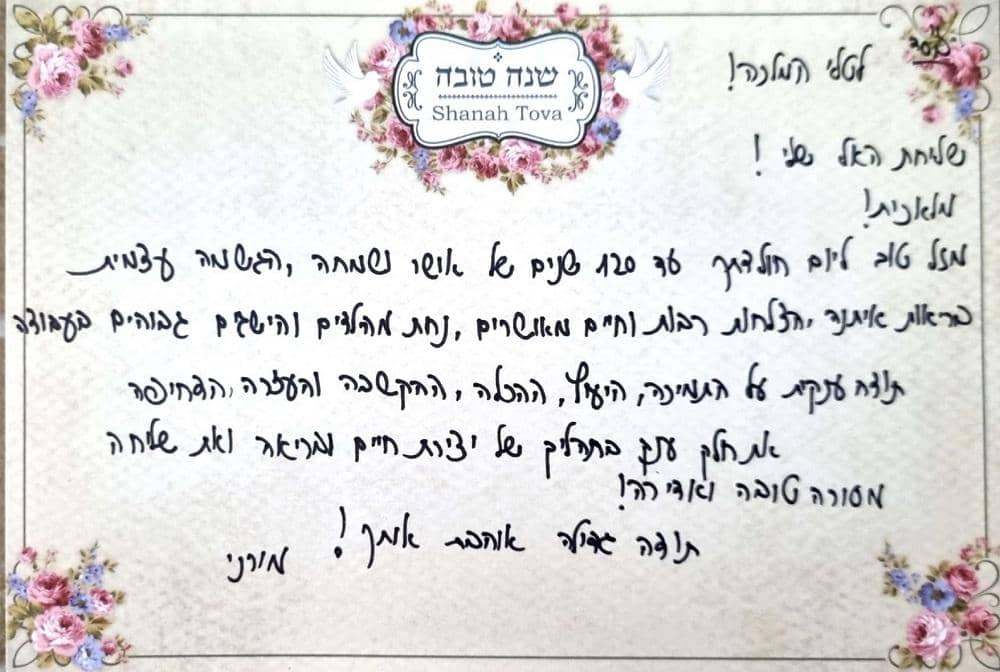 בס"ד
שנה טובה
Shanah Tova
לטלי המלכה!
שליחת האל שלי!
מלאכית!
מזל טוב ליום הולדתך עד 120 שנים של אושר ושמחה, הגשמה עצמית
בריאות איתנה, הצלחות רבות וחיים מאושרים, נחת מהילדים והישגים גבוהים בעבודה
תודה ענקית על התמיכה, היעוץ, ההכלה, ההקשבה והעזרה, הדחיפה
את חלק ענק בתהליך של יצירת חיים ובריאה ואת שליחה
מסורה טובה ואדירה!
תודה גדולה אוהבת אותך!
מורני